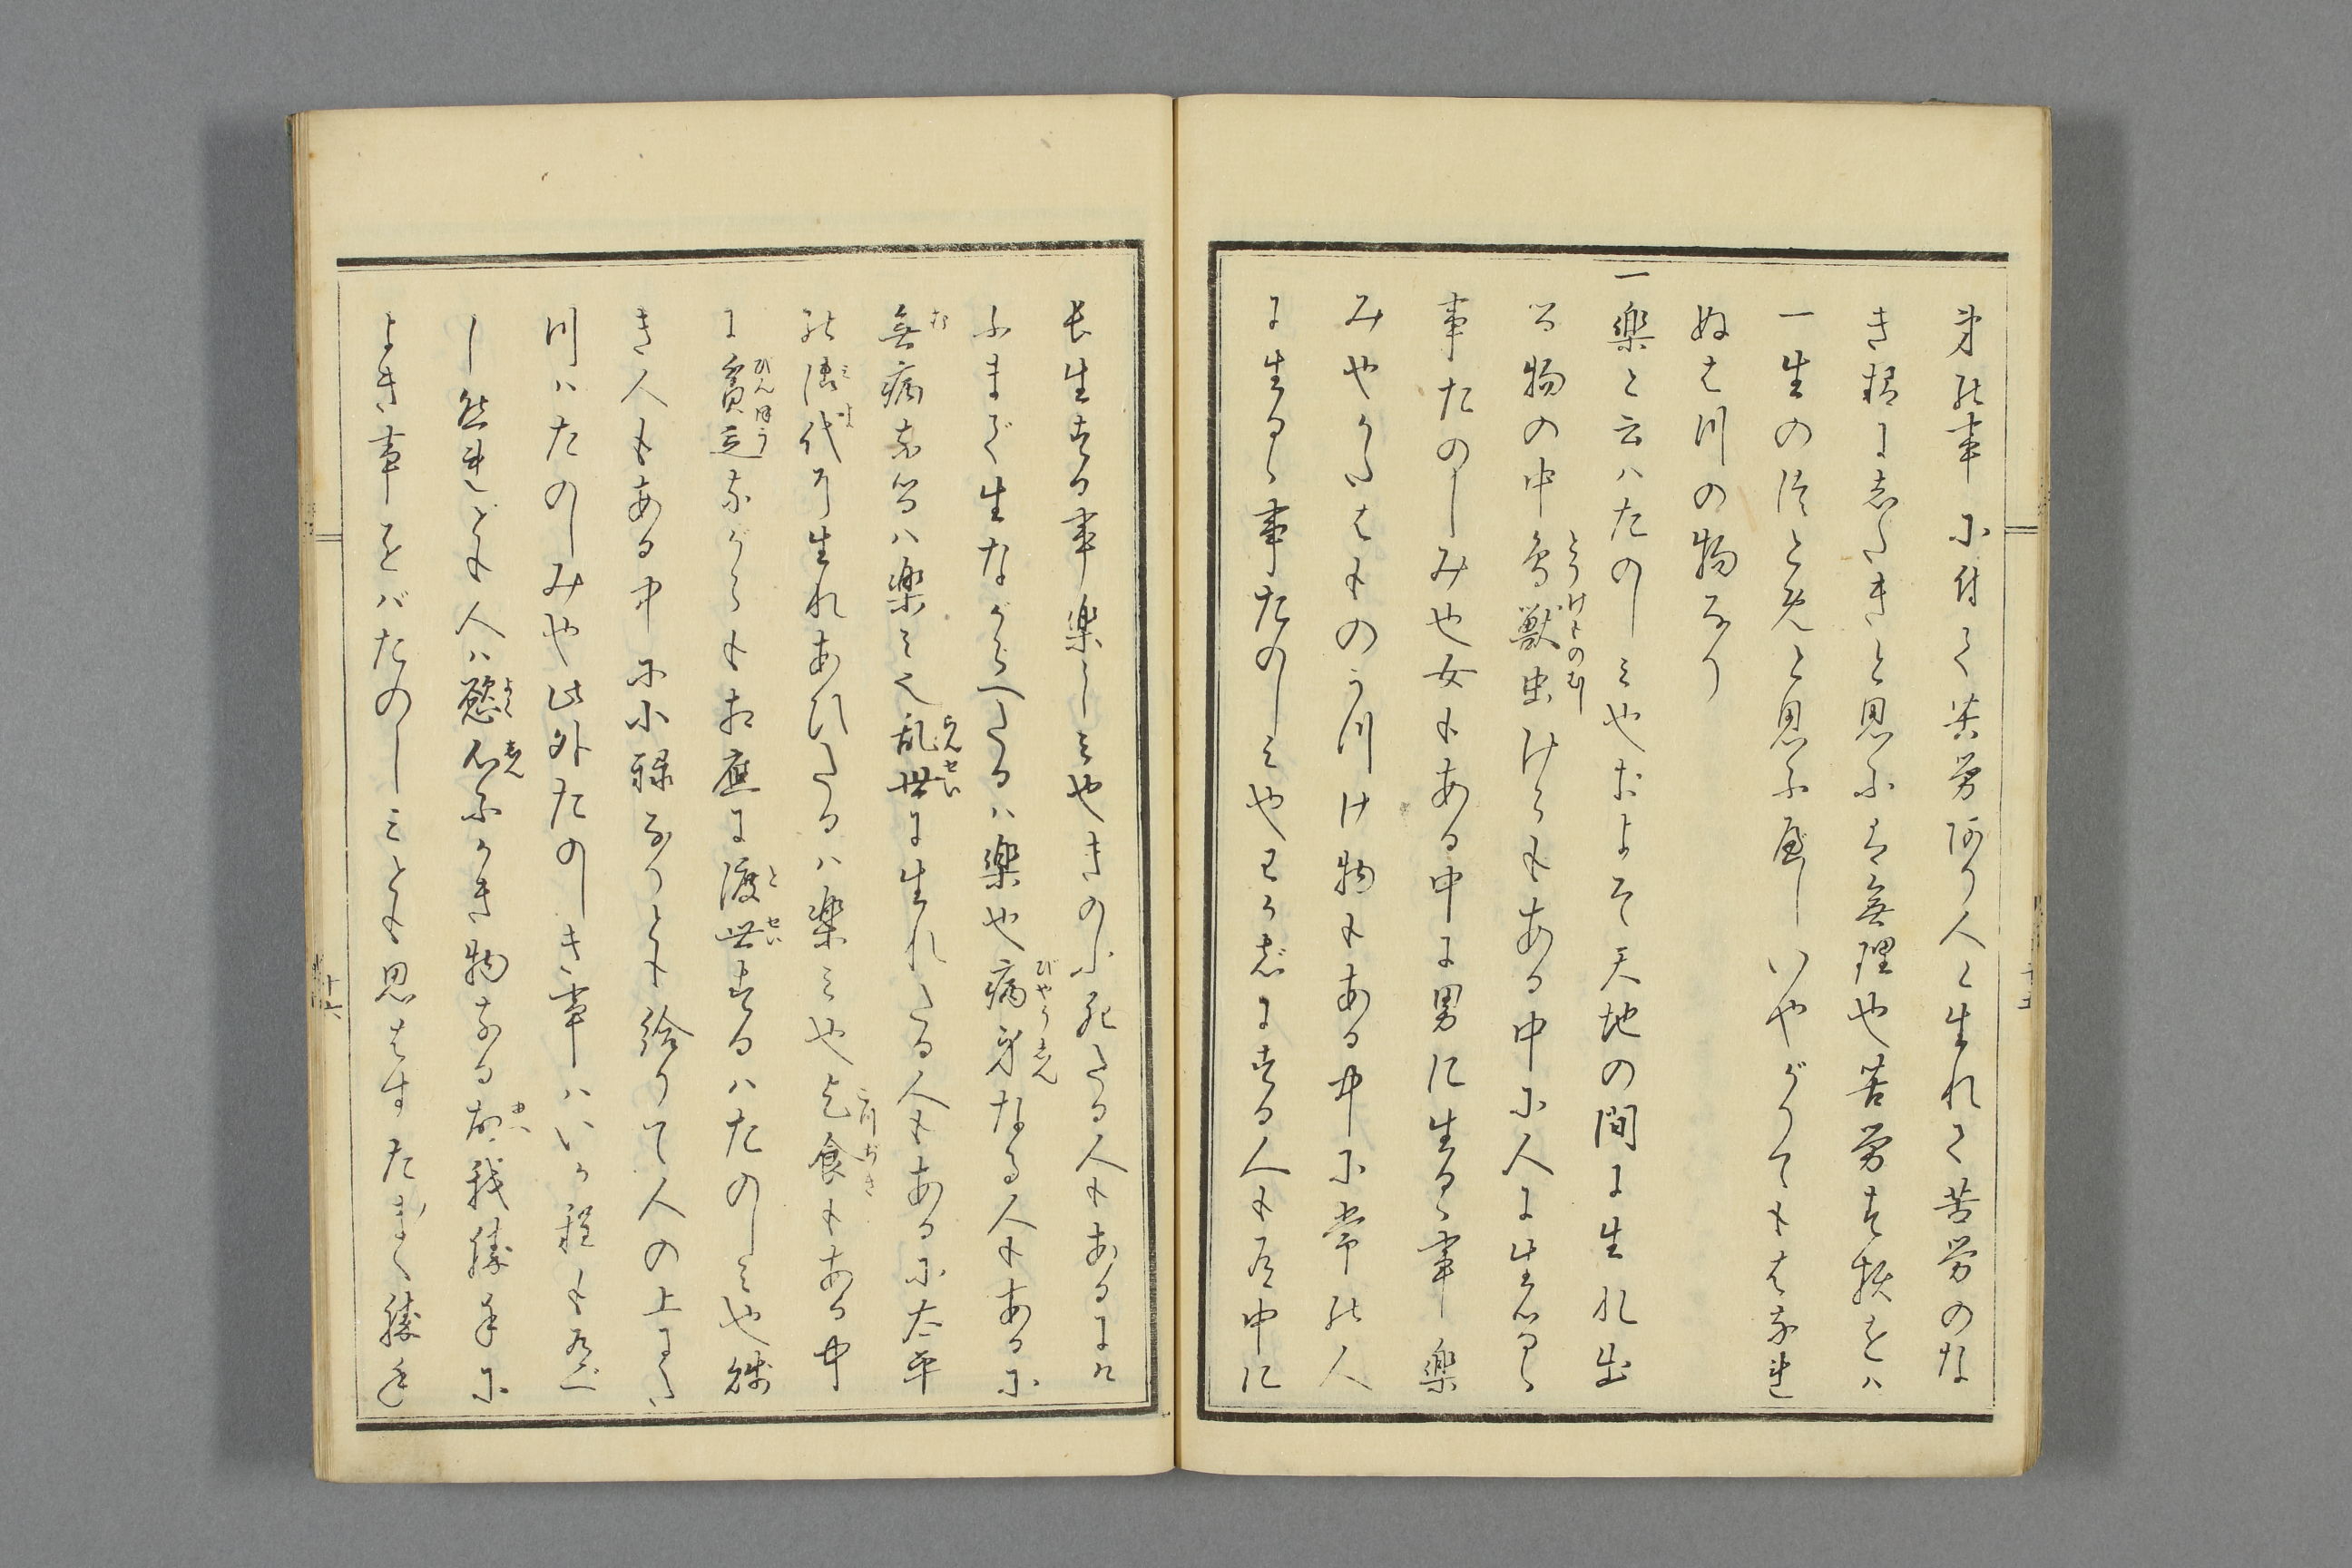 身の事に付て苦労あり人と生れて苦労のな
き様にしたきと思ふは無理也苦労
一生の と思ふべしいやがりてもはなれ
ぬはつの物なり
一楽と云ハたのしミやおよそ天地の間に生れ出
る物の中鳥獣虫けらもある中に人に生るゝ
事たのしみ也女もある中に男に生るゝ事楽
みやかたはものうつけ物もある中に常の人
に生るゝ事たのしミやわかじにする人も有中に
長生する事楽しミやきのふ死たる人もあるにけ
ふまで生ながらへたるハ楽也病身なる人もあるに
無病なるハ楽ミ也乱世に生れたる人もあるに太平
の御代に生れあひたるハ楽ミや乞食もある中
に貧乏ながらも相應に渡世するハたのしミや賤
き人もある中に小禄なりとも給りて人の上にた
つハたのしみや此外たのしき事ハいか程も有べ
し然れども人ハ慾心ふかき物なる故我勝手に
よき事をバたのしミとも思はすたま〳〵勝手
十五
十六